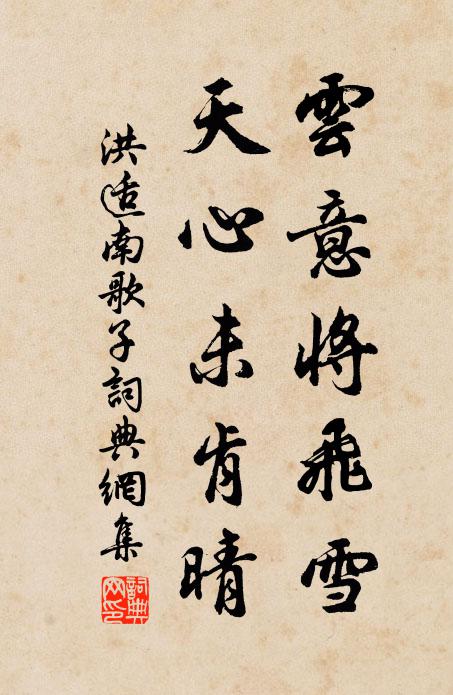 雲意將飛雪
天心未肯晴
洪适南歌子詞典網集
詞典網印